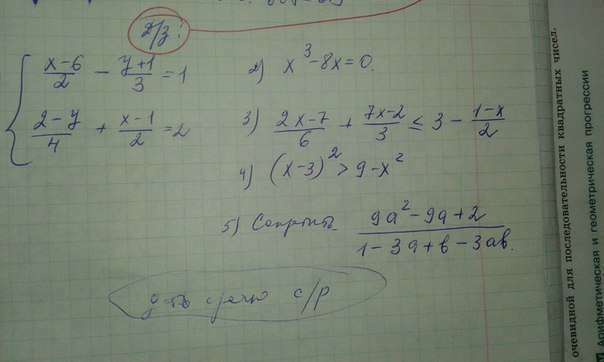 д/з:
{ (x-6)/2 - (y+1)/3 = 1
(2-y)/4 + (x-1)/2 = 2
2) x³-8x=0.
3) (2x-7)/6 + (7x-2)/3 ≤ 3 - (1-x)/2
4) (x-3)² > 9-x²
5) Сократить (9a²-9a+2)/(1-3a+b-3ab).
с/р
очевидной для последовательности квадратных чисел.
Арифметическая и геометрическая прогрессии